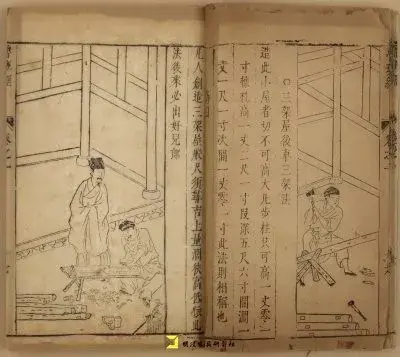 〇三架屋後車三架法
造此小屋者切不可高大凡步柱只可高一丈零一
寸棟柱高一丈二尺一寸段深五尺六寸間濶一
丈一尺一寸次間一丈零一寸此法則相稱也
凡人創造三架屋般尺須尋吉上量濶狹高低依此
法後來必出好兒郎